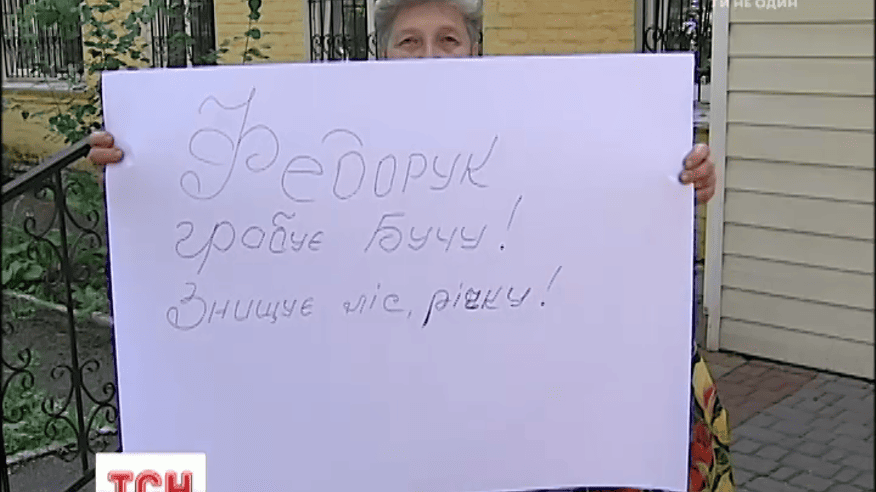 ТИ НЕ ОДИН
Федорук
грабує Бучу!
Знищує ліс, річку!
ТСН